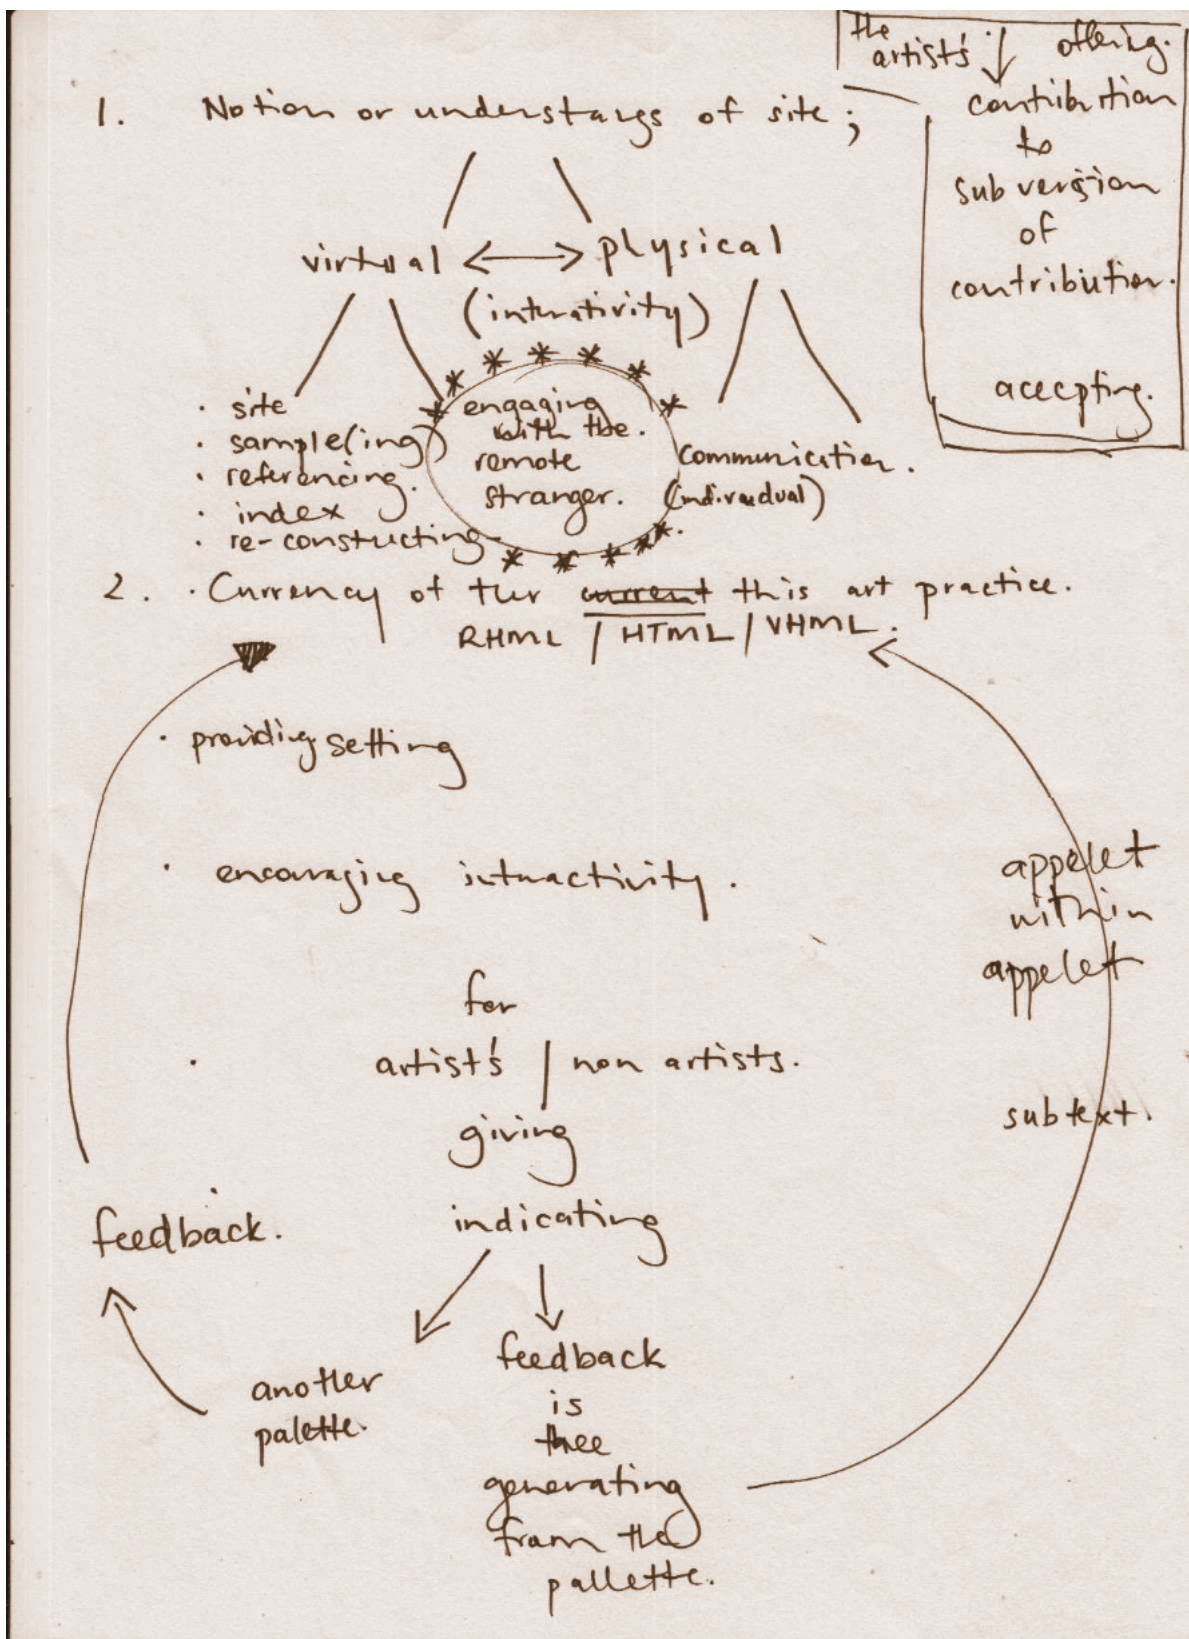 the
artist's offering.
contribution
to
subversion
of
contribution.
accepting.
1. Notion or understangs of site;
virtual physical
(interativity)
· site
· sample(ing)
· referencing.
· index
· re-constucting
engaging
with the.
remote
stranger.
communication.
(individual)
2. · Currency of the current this art practice.
RHML / HTML / VHML.
· providing setting
· encouraging interactivity.
for
· artist's / non artists.
giving
indicating
appelet
within
appelet
subtext.
feedback.
another
palette.
feedback
is
thee
generating
from the
pallette.